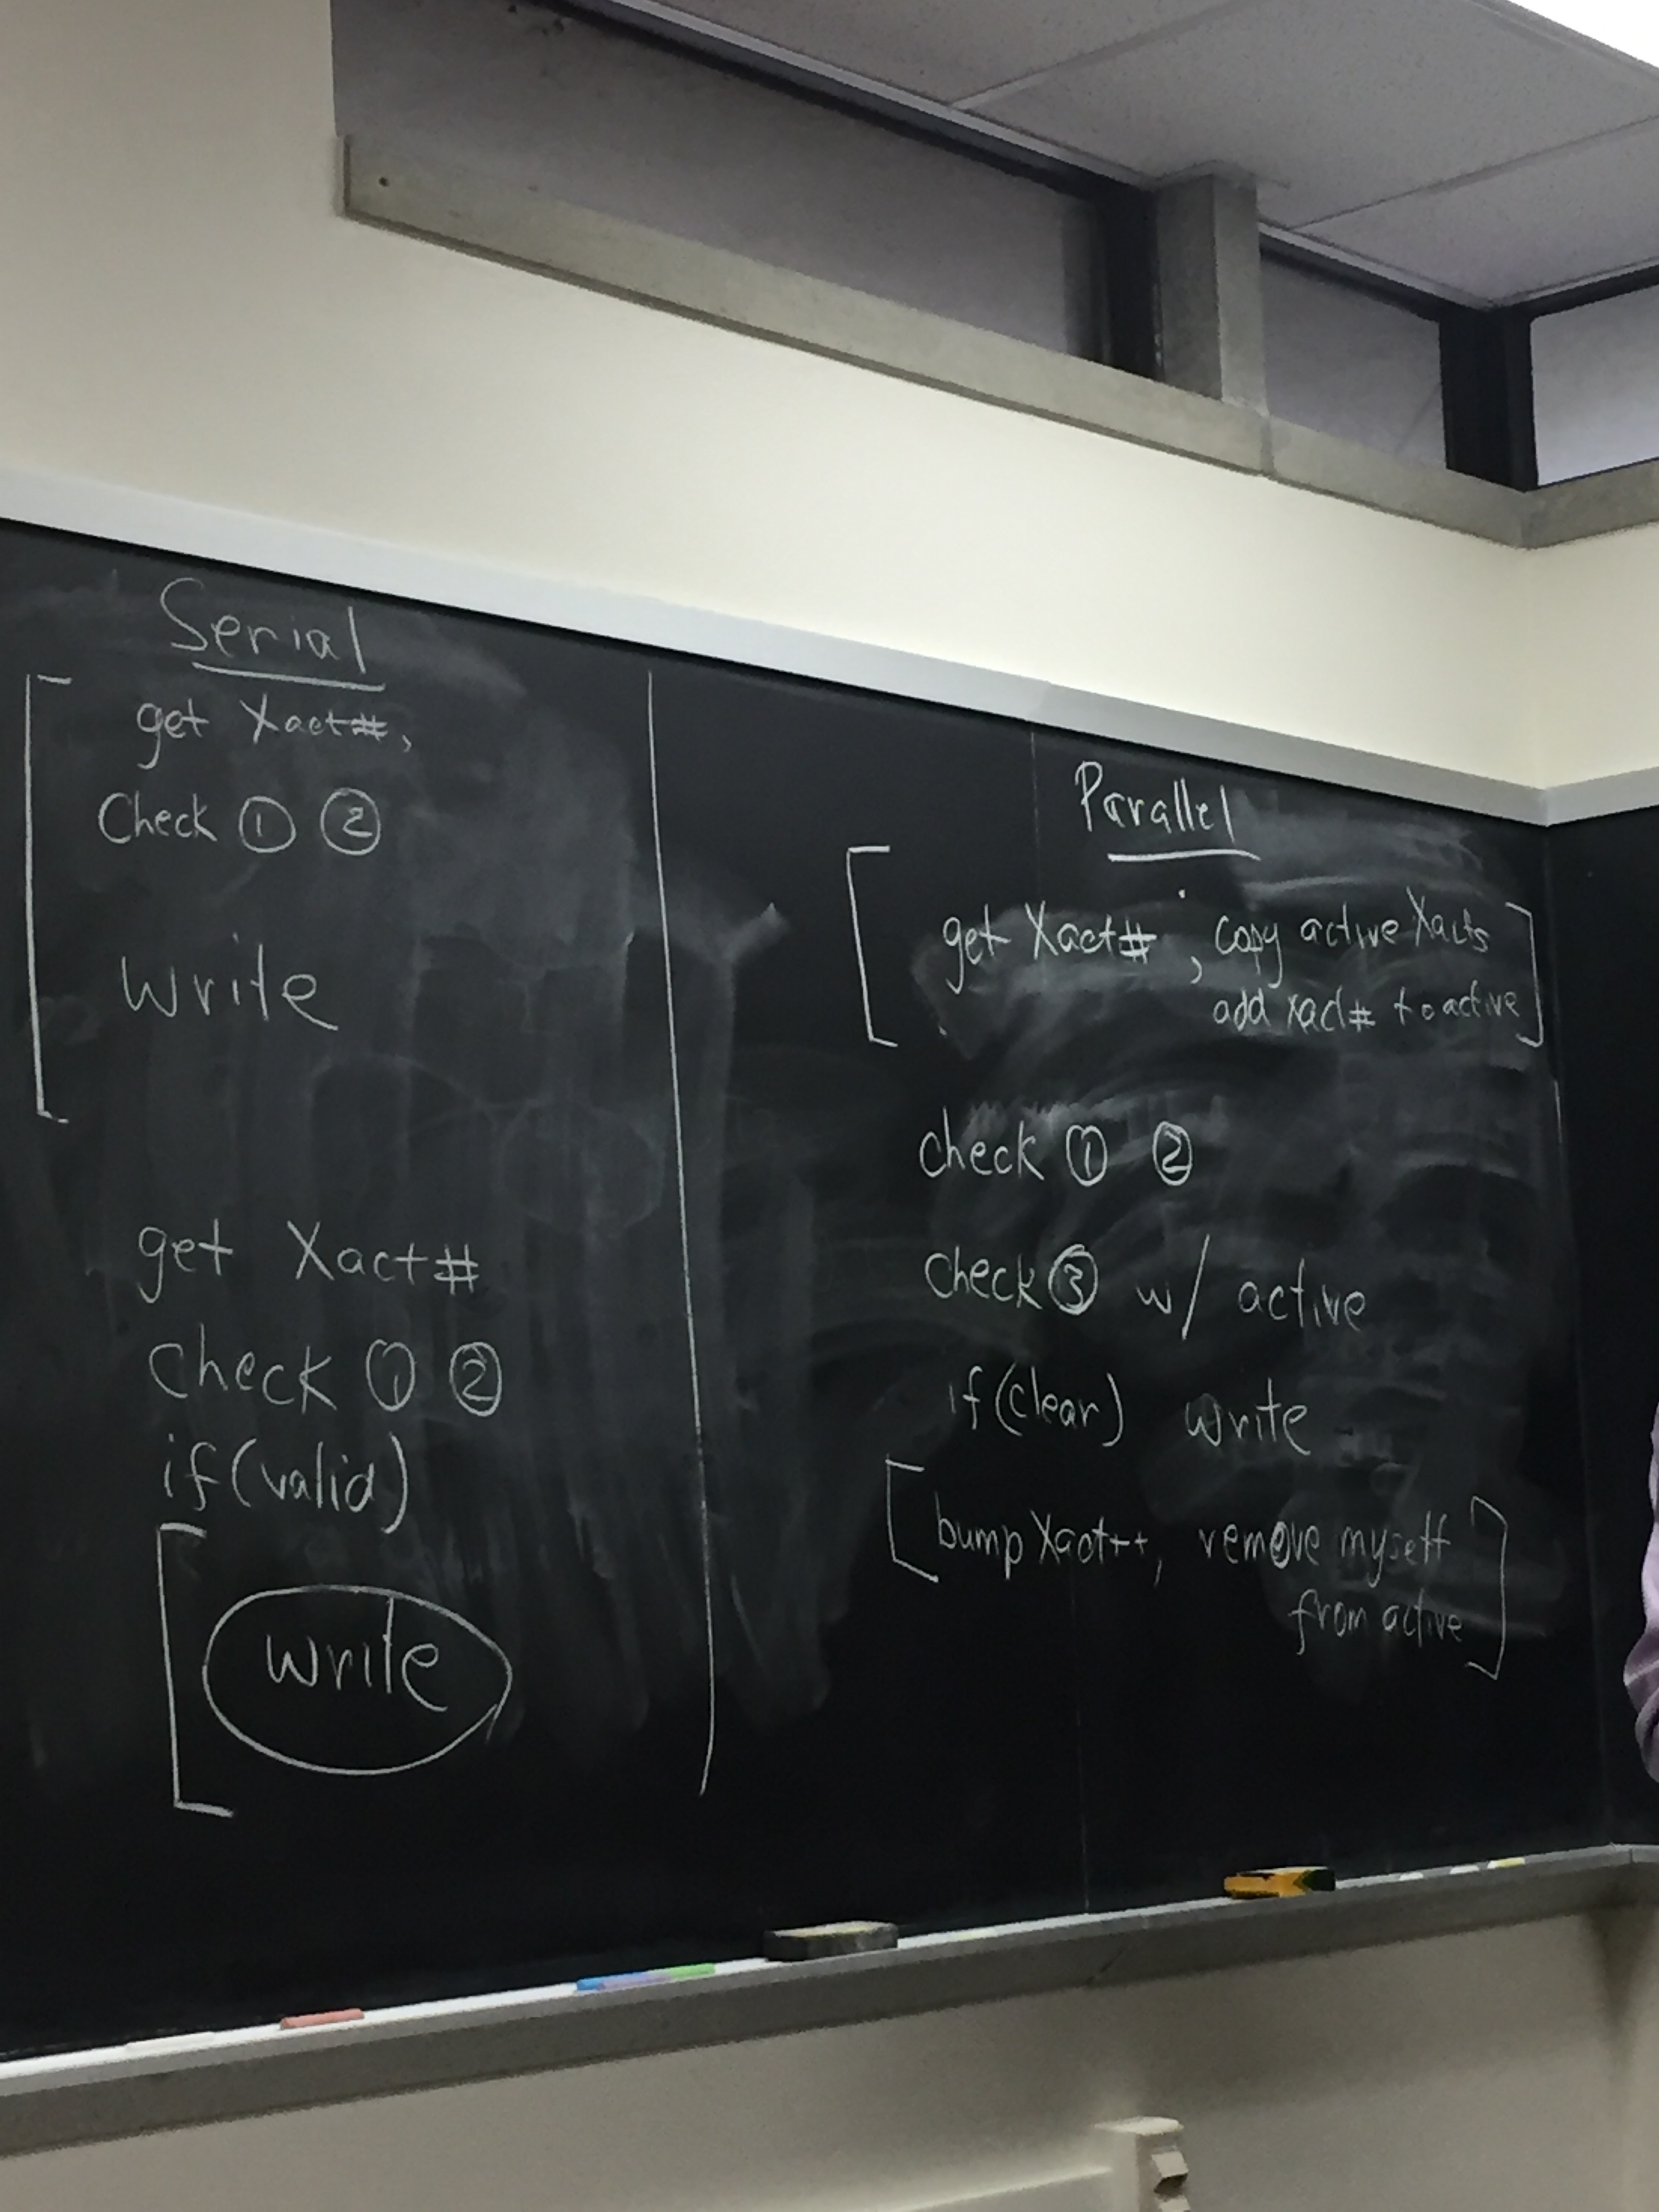 Serial
get Xact#,
Check ① ②
write
get Xact#
check ① ②
if(valid)
write
Parallel
get Xact#, copy active Xacts
add xact# to active
check ① ②
check ③ w/ active
if(clear) write
bump Xact++, remove myself
from active